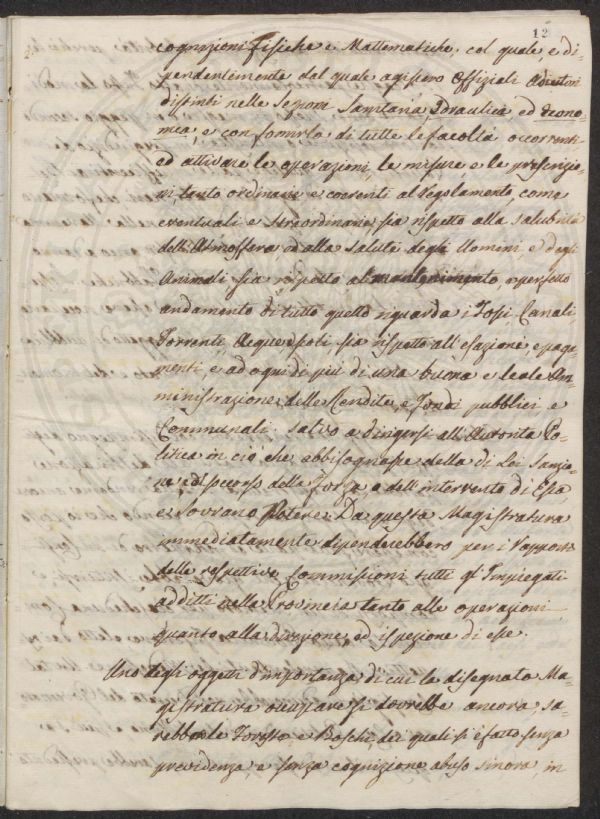 12
cognizioni Fisiche e Mattematiche, col quale, e di-
pendentemente dal quale agissero Offiziali Direttori
distinti nelle Sezioni Sanitaria, Idraulica ed Econo-
mica, e con fornirlo di tutte le facoltà occorrenti
ed attivare le operazioni, le misure e le prescrizio-
ni, tanto ordinarie e coerenti al regolamento, come
eventuali e straordinarie, sia rispetto alla salubrità
dell'Atmosfera, ed alla salute degli Uomini, e degli
Animali sia rispetto al mantenimento, e perfetto
andamento di tutto quello riguarda i Fossi, Canali
Torrenti Acque, Scoli, sia rispetto all'esazione, e paga-
menti, e ad oggetti di più di una buona e leale Am-
ministrazione delle Rendite, e Fondi pubblici e
Communali. salvo a dirigersi all'Autorità Po-
litica in ciò che abbisognasse della di Lei Sanzio-
ne, ed soccorso della Forza, e dell'intervento di Essa
e Sovrano Potere. Da questa Magistratura
immediatamente dipenderebbero per i rapporti
delle respettive Commissioni tutti gl'Impiegati
additti nella Provincia tanto alle operazioni
quanto alla direzione, ed ispezione di esse.
Uno degli oggetti d'importanza di cui la disegnata Ma-
gistratura occupare si dovrebbe ancora, sa-
rebbero le Foreste, e Boschi, dei quali si è fatto senza
previdenza, e senza cognizione abuso sinora, in